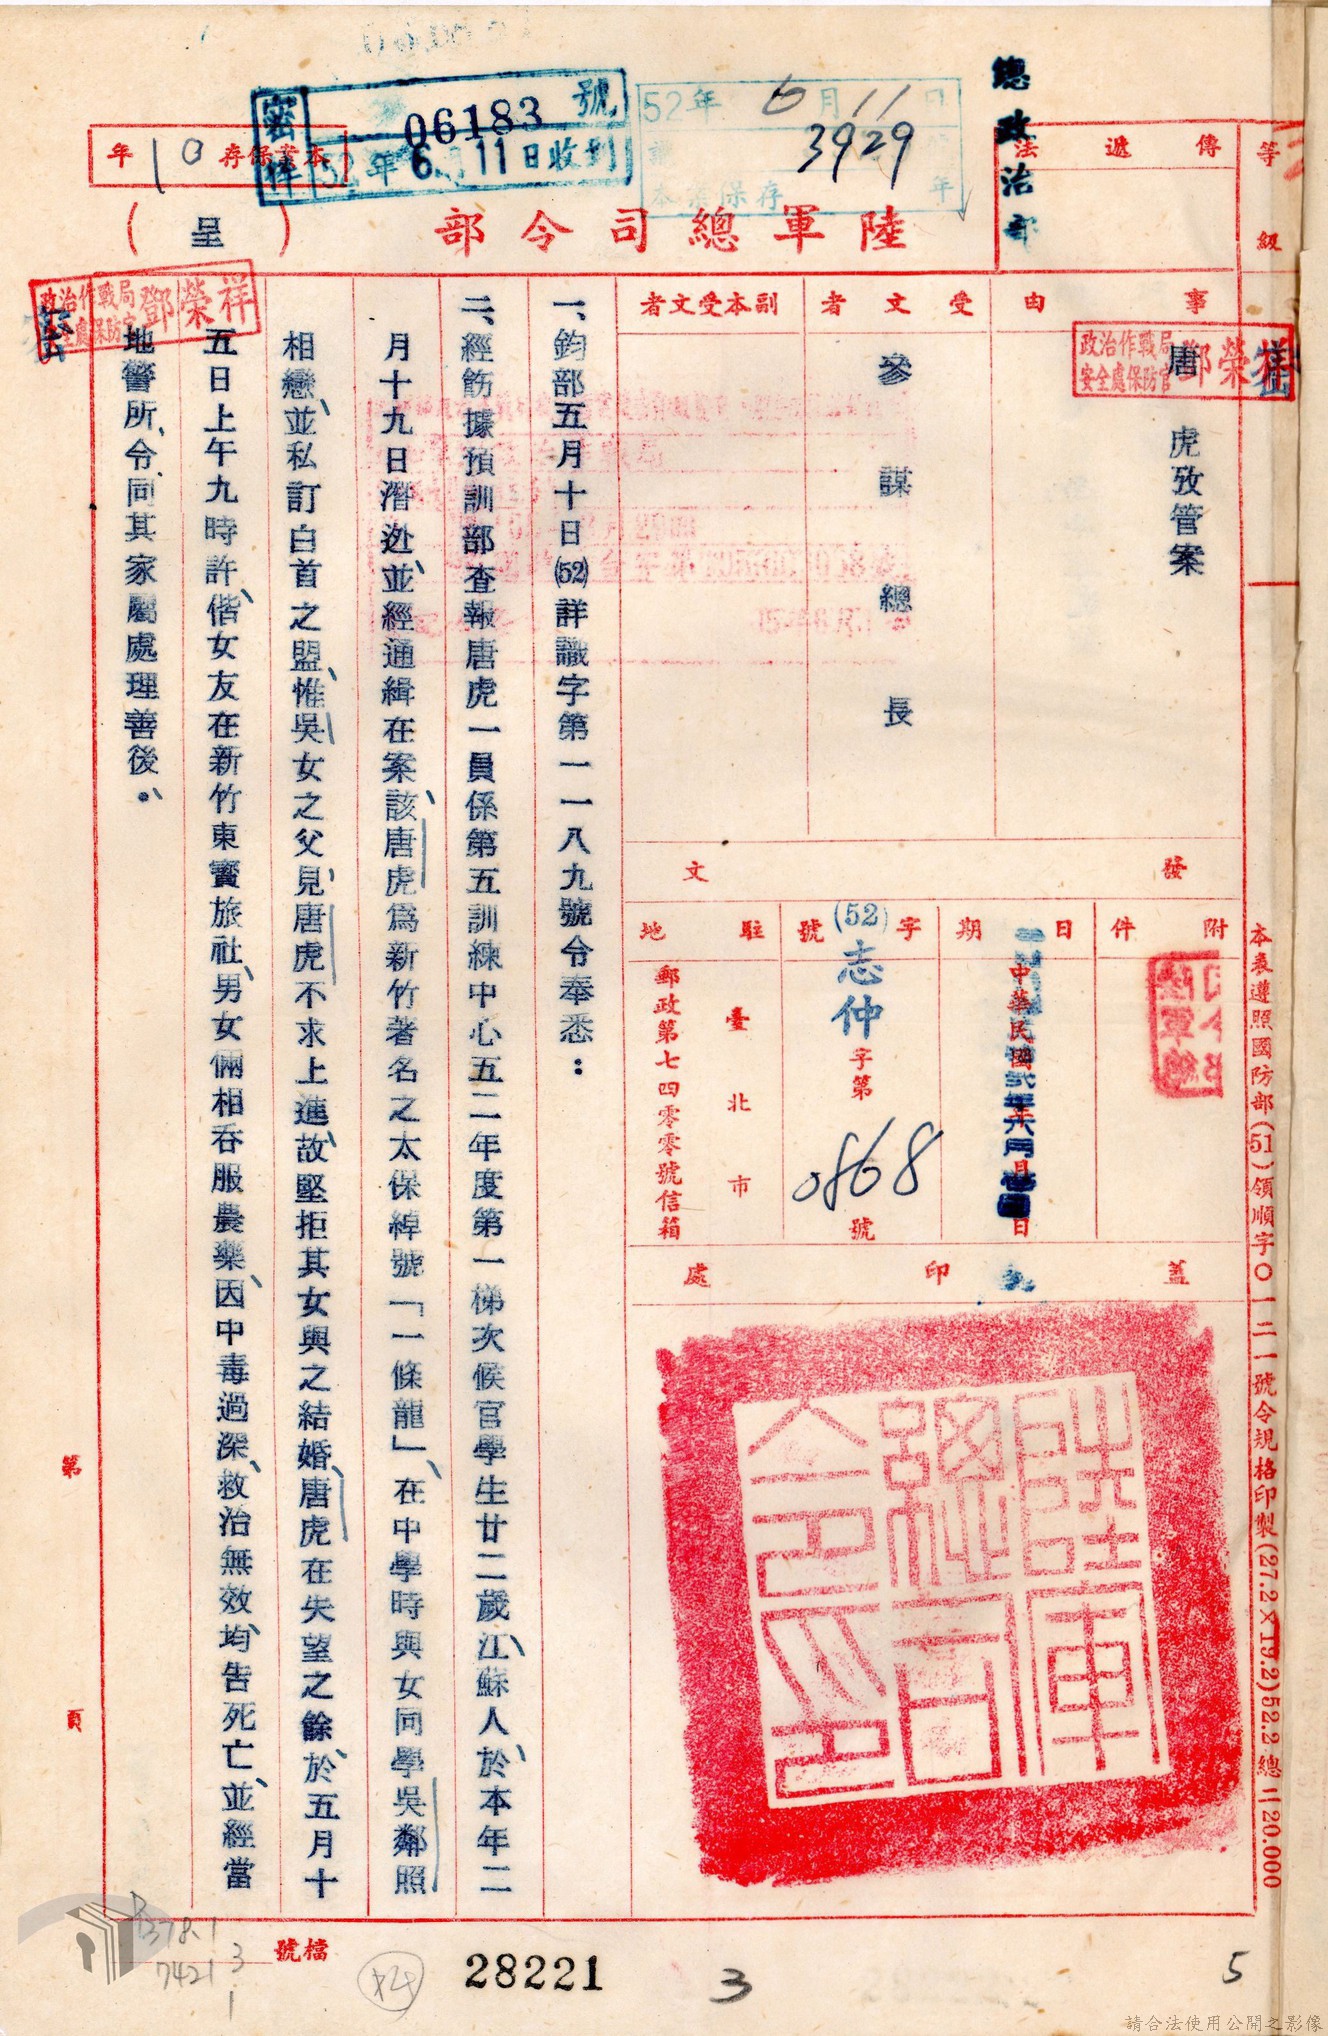 總政治部
等級
傳遞法
密件
06183號
52年6月11日收到
52年6月11日
3929
本案保存 年
本案保存10年
陸軍總司令部
(呈)
事由
唐虎攷管案
政治作戰局
安全處保防官
鄧榮祥
受文者
參謀總長
副本受文者
發文
附件
日期
中華民國
字號
(52)志仲字第0868號
駐地
臺北市
郵政第七四零零號信箱
蓋印處
陸軍總司令印
本表遵照國防部(51)領順字〇一二一號令規格印製(27.2×19.2)52.2總二20.000
一、鈞部五月十日(52)詳識字第一一八九號令奉悉：
二、經飭據預訓部查報唐虎一員係第五訓練中心五二年度第一梯次候官學生廿二歲、江蘇人、於本年二
月十九日潛逃、並經通緝在案、該唐虎為新竹著名之太保綽號「一條龍」、在中學時與女同學吳鄰照
相戀、並私訂白首之盟、惟吳女之父見、唐虎不求上進、故堅拒其女與之結婚、唐虎在失望之餘、於五月十
五日上午九時許、偕女友在新竹東賓旅社、男女倆相吞服農藥、因中毒過深、救治無效、均告死亡、並經當
地警所、令同其家屬處理善後。
政治作戰局
安全處保防官
鄧榮祥
第 頁
檔號
B378.1
7421
3
1
28221
3
5
請合法使用公開之影像